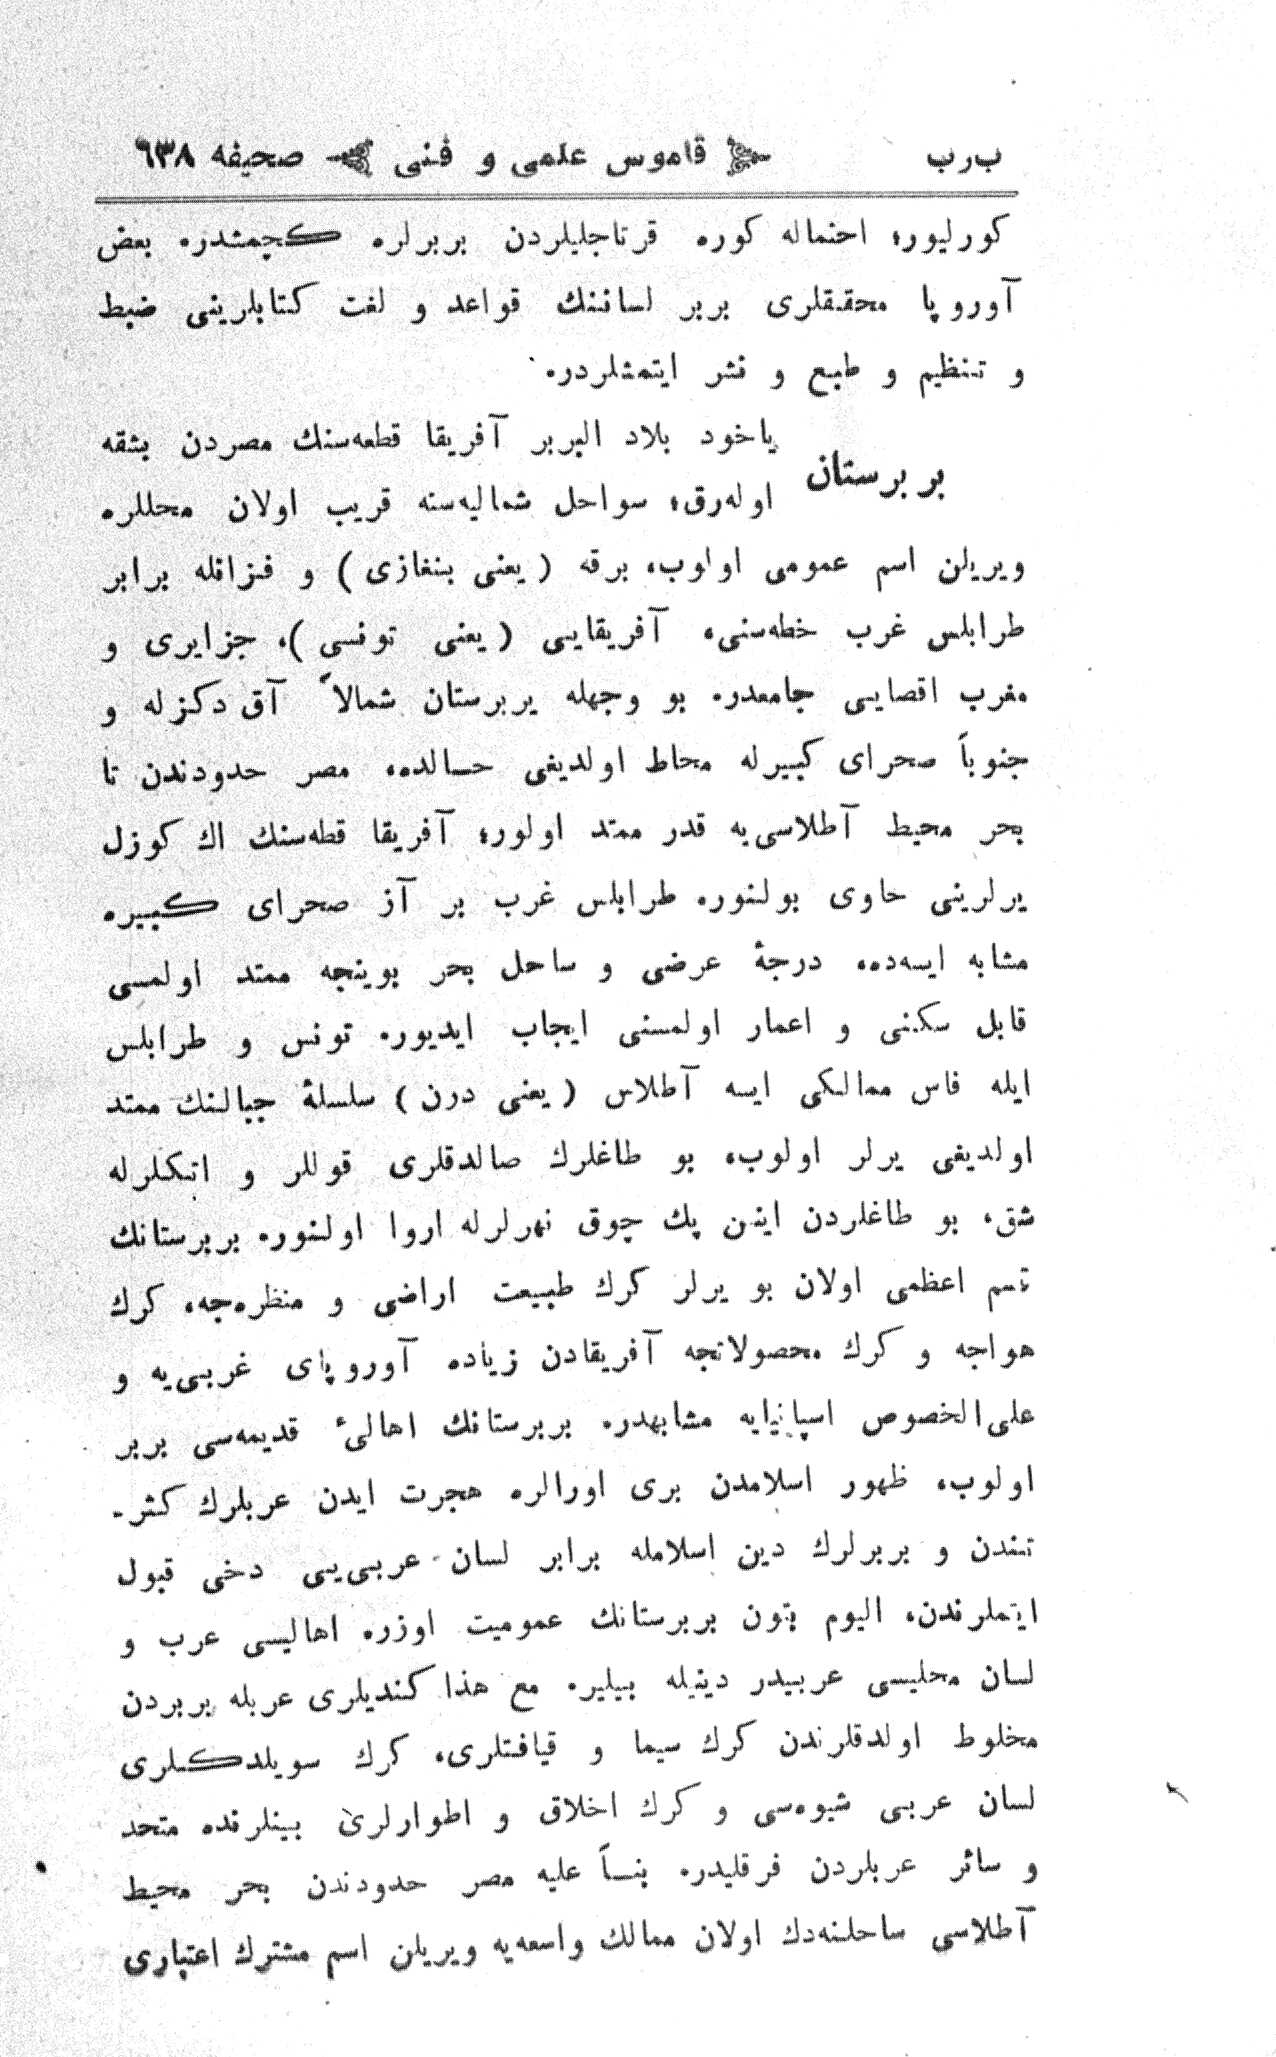 ب‌رب قاموس علمی و فنی صحیفه ٦٣٨
كورلیور؛ احتماله كوره قرتاجلیلردن بربرلره كچمشدر. بعض
آوروپا محققلری بربر لساننك قواعد و لغت كتابلرینی ضبط
و تنظیم و طبع و نشر ایتمشلردر.
بربرستان
یاخود بلاد البربر آفریقا قطعه‌سنك مصردن بشقه
اوله‌رق؛ سواحل شمالیه‌سنه قریب اولان محللره
ویریلن اسم عمومی اولوب، برقه (یعنی بنغازی) و فزانله برابر
طرابلس غرب خطه‌سنی، آفریقایی (یعنی تونسی)، جزایری و
مغرب اقصایی جامعدر. بو وجهله بربرستان شمالاً آق دكزله و
جنوباً صحرای كبیرله محاط اولدیغی حالده، مصر حدودندن تا
بحر محیط آطلاسی‌یه قدر ممتد اولور؛ آفریقا قطه‌سنك اك كوزل
یرلرینی حاوی بولنور. طرابلس غرب بر آز صحرای كبیره
مشابه ایسه‌ده، درجهٔ عرضی و ساحل بحر بوینجه ممتد اولمسی
قابل سكنی و اعمار اولمسنی ایجاب ایدیور. تونس و طرابلس
ایله فاس ممالكی ایسه آطلاس (یعنی درن) سلسلهٔ جبالنك ممتد
اولدیغی یرلر اولوب، بو طاغلرك صالدقلری قوللر و اتكلرله
شق، بو طاغلردن اینن پك چوق نهرلرله اروا اولنور. بربرستانك
قسم اعظمی اولان بو یرلر كرك طبیعت اراضی و منظره‌جه، كرك
هواجه و كرك محصولاتجه آفریقادن زیاده آوروپای غربی‌یه و
علی‌الخصوص اسپانیایه مشابهدر. بربرستانك اهالیٔ قدیمه‌سی بربر
اولوب، ظهور اسلامدن بری اورالره هجرت ایدن عربلرك كثر-
تندن و بربرلرك دین اسلامله برابر لسان عربی‌یی دخی قبول
ایتملرندن، الیوم بتون بربرستانك عمومیت اوزره اهالیسی عرب و
لسان محلیسی عربیدر دینیله بیلیر. مع هذا كندیلری عربله بربردن
مخلوط اولدقلرندن كرك سیما و قیافتلری، كرك سویلدكلری
لسان عربی شیوه‌سی و كرك اخلاق و اطوارلری بینلرنده متحد
و سائر عربلردن فرقلیدر. بنــاً علیه مصر حدودندن بحر محیط
آطلاسی ساحلنه‌دك اولان ممالك واسعه‌یه ویریلن اسم مشترك اعتباری